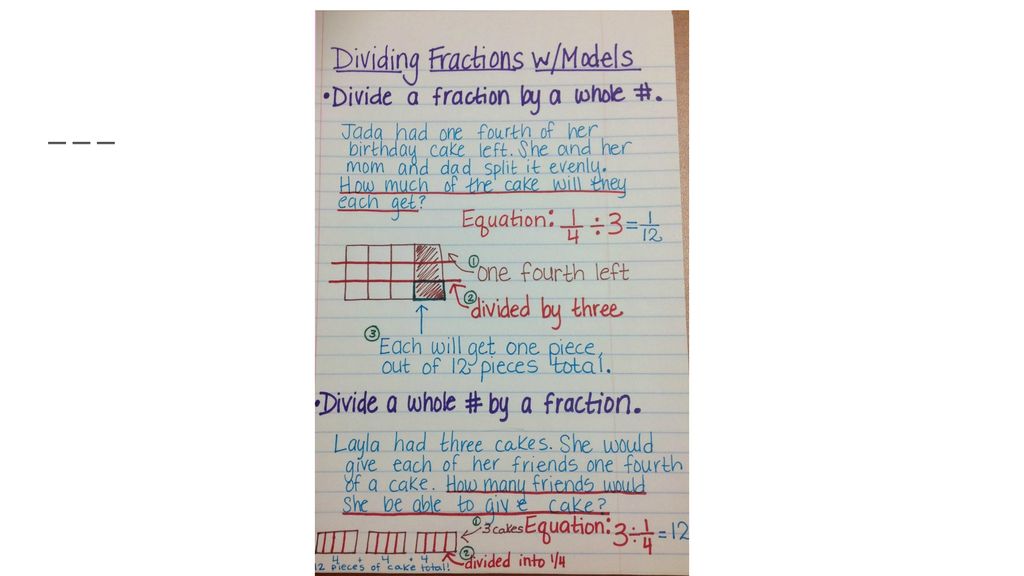 Dividing Fractions w/Models
•Divide a fraction by a whole #.
Jada had one fourth of her
birthday cake left. She and her
mom and dad split it evenly.
How much of the cake will they
each get?
Equation: 1/4 ÷ 3 = 1/12
① one fourth left
② divided by three
③ Each will get one piece
out of 12 pieces total.
•Divide a whole # by a fraction.
Layla had three cakes. She would
give each of her friends one fourth
of a cake. How many friends would
she be able to give cake?
① 3 cakes Equation: 3 ÷ 1/4 = 12
4 + 4 + 4
② divided into 1/4
12 pieces of cake total!